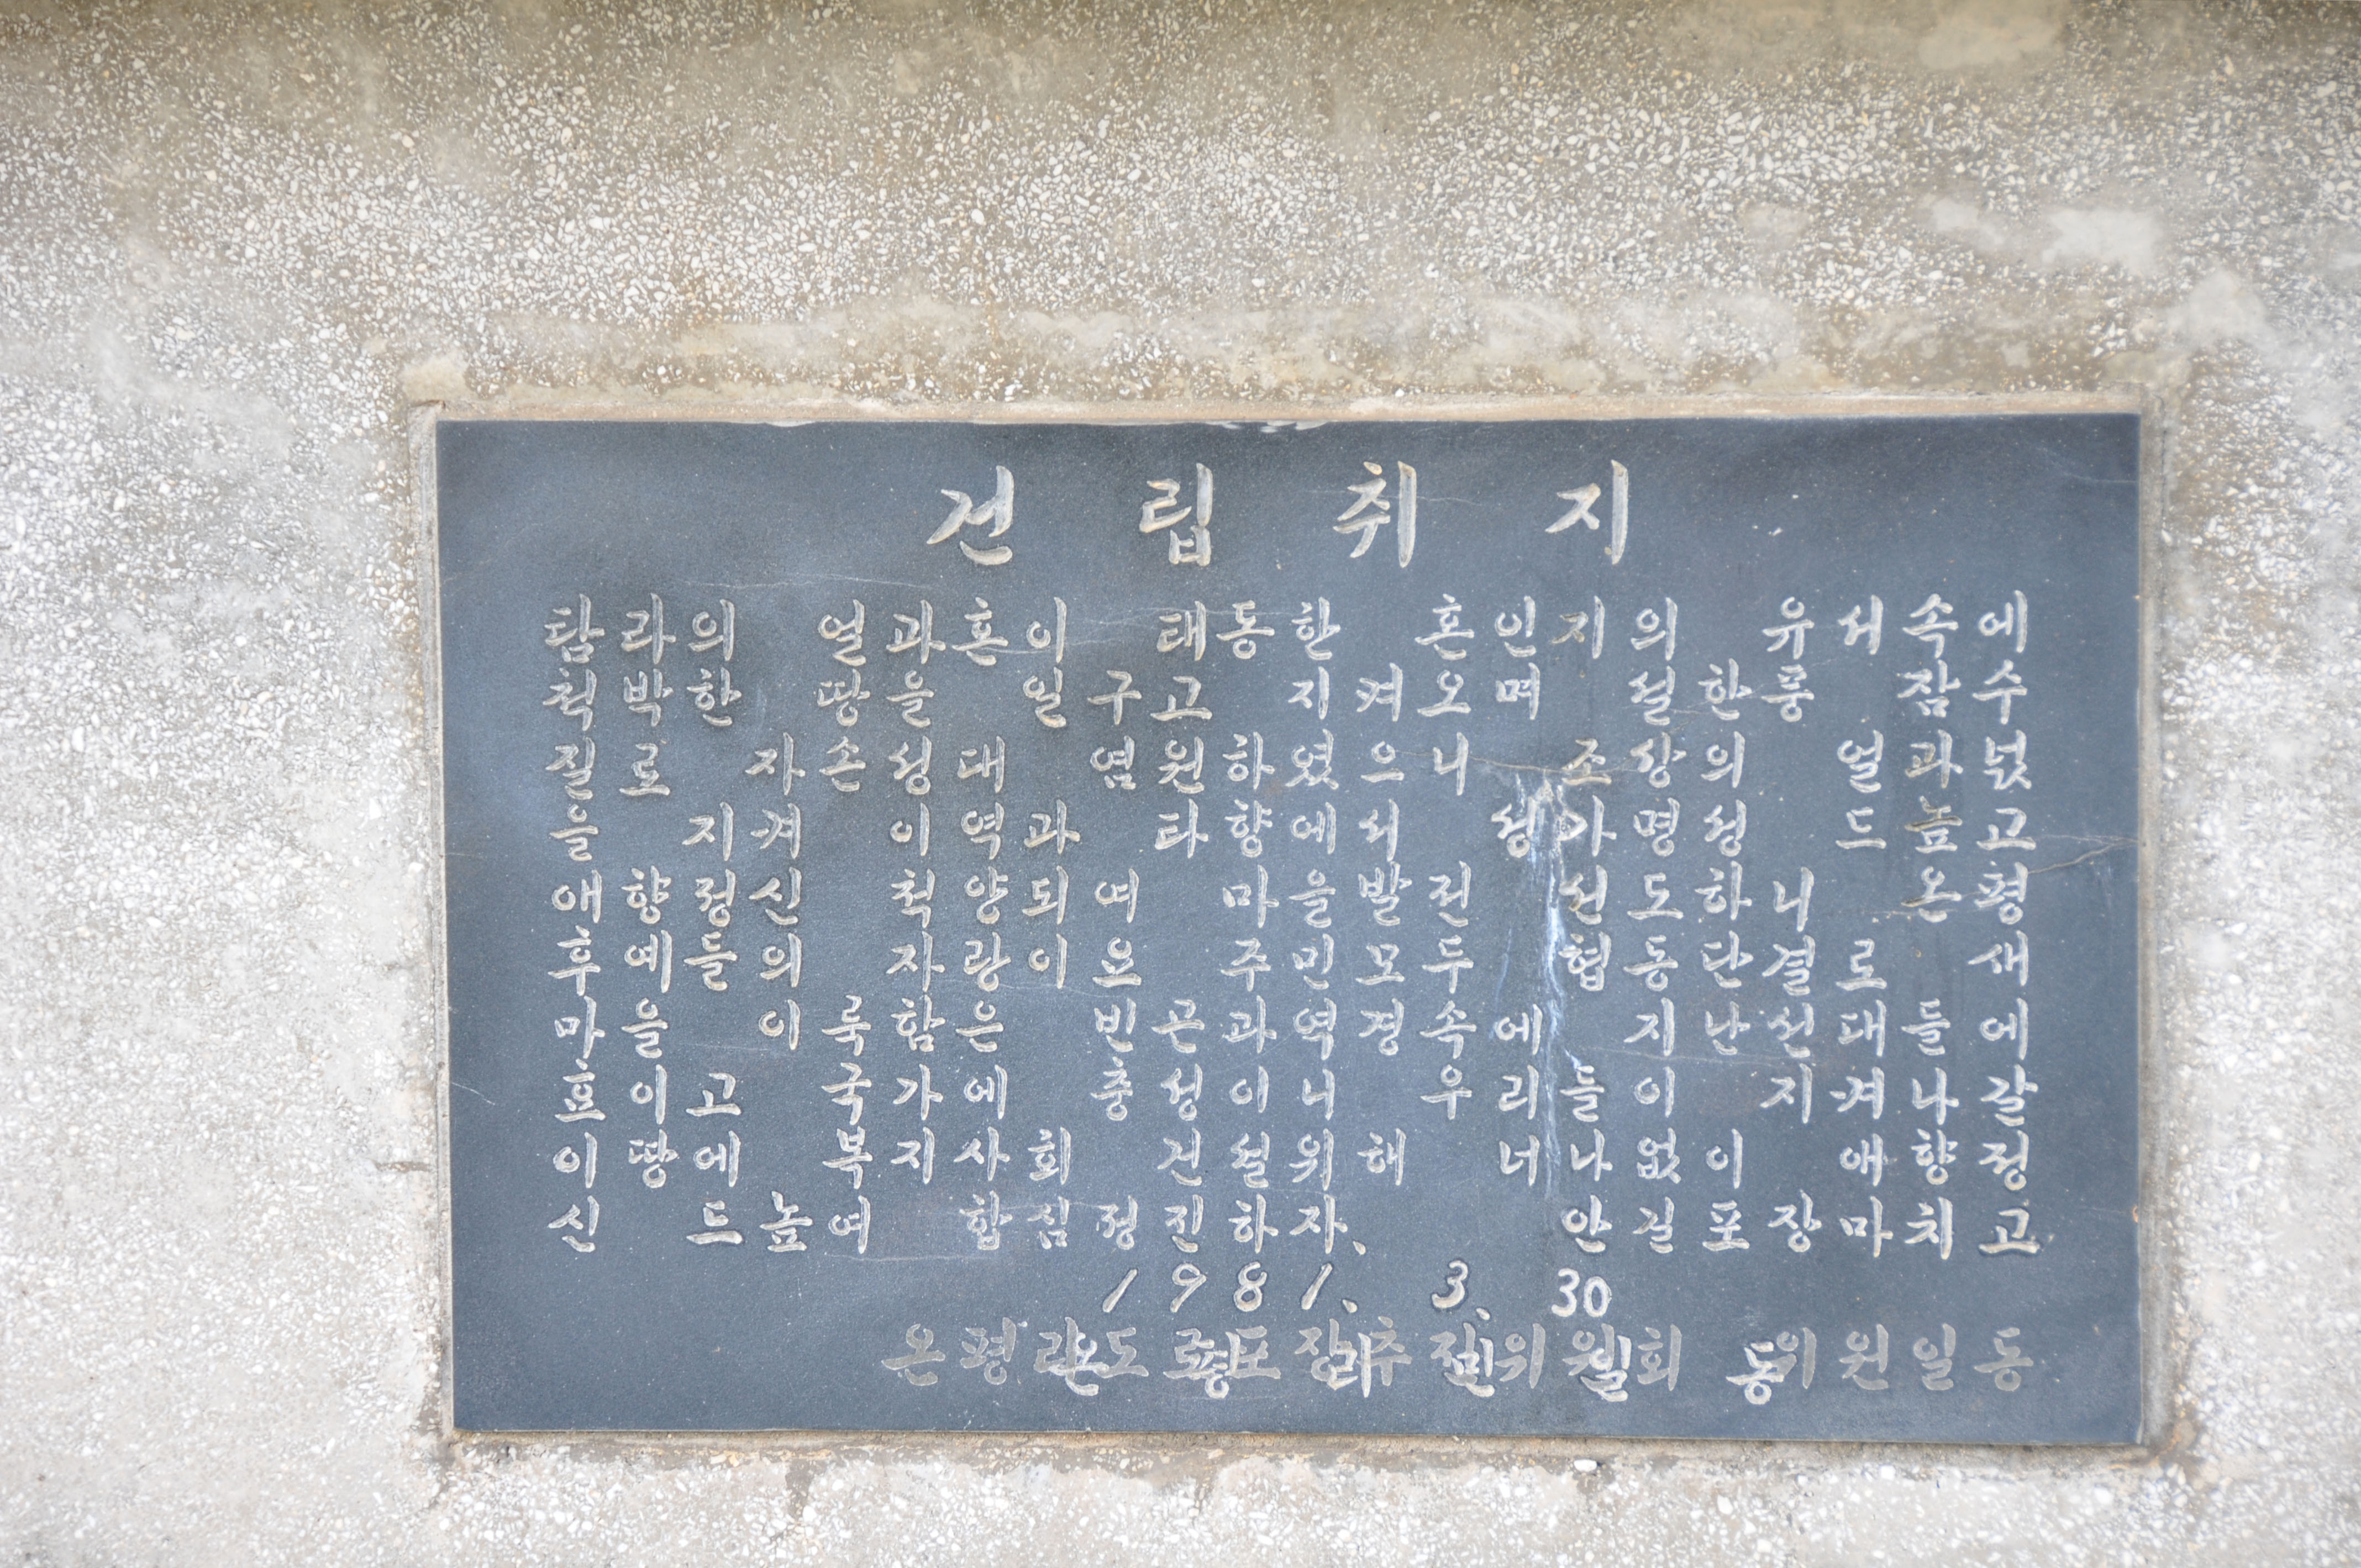 건립취지
탐라의 얼과혼이 태동한 혼인지의 유서속에
척박한 땅을 일구고 지켜오며 설한풍 잠수
질로 자손성대 염원하였으니 조상의 얼과넋
을 지켜 이역과 타향에서 성가명성 드높고
애향정신 척양되여 마을발전 선도하니 온평
후예들의 자랑이요 주민모두 협동단결로 새
마을 이룩함은 빈곤과역경속에 지난선대들에
효이고 국가에 충성이니 우리들이 지켜나갈
이땅에 복지사회 건설위해 너나없이 애향정
신 드높여 합심정진하자. 안길포장마치고
1981. 3. 30
온평 도로포장추진위원회 위원일동
온평리민일동